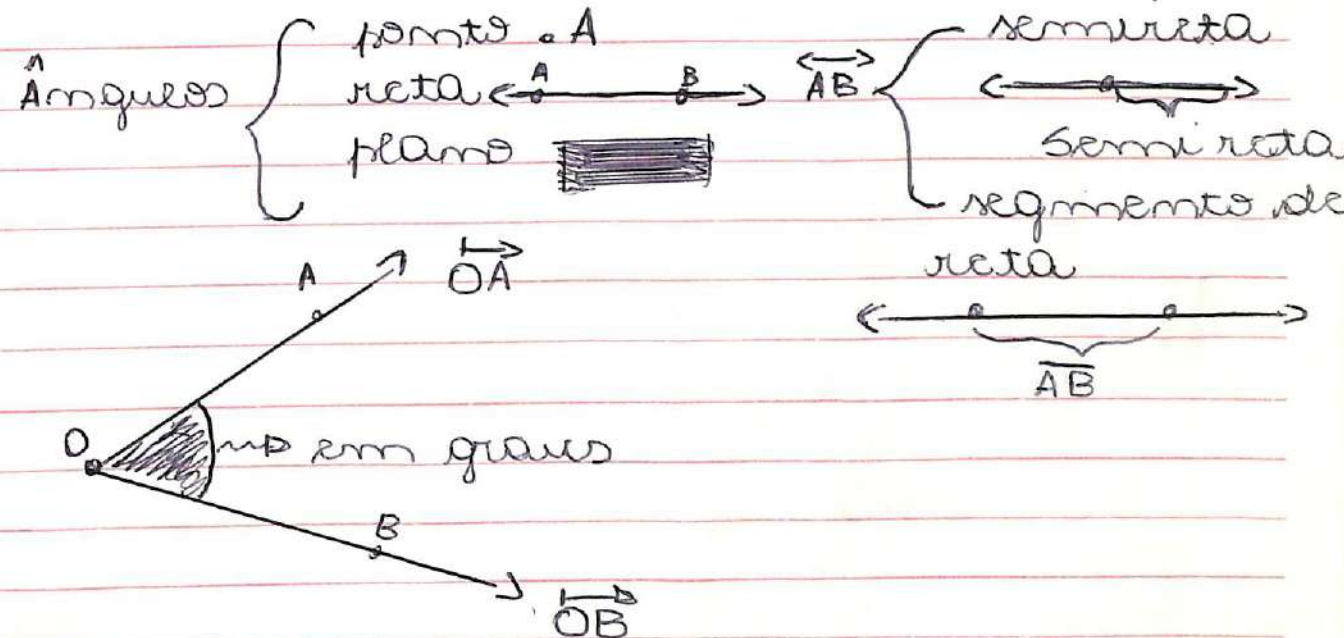 Ângulos
ponto . A
reta A B
plano
AB
semireta
semi reta
segmento de
reta
AB
A
OA
O
em graus
B
OB